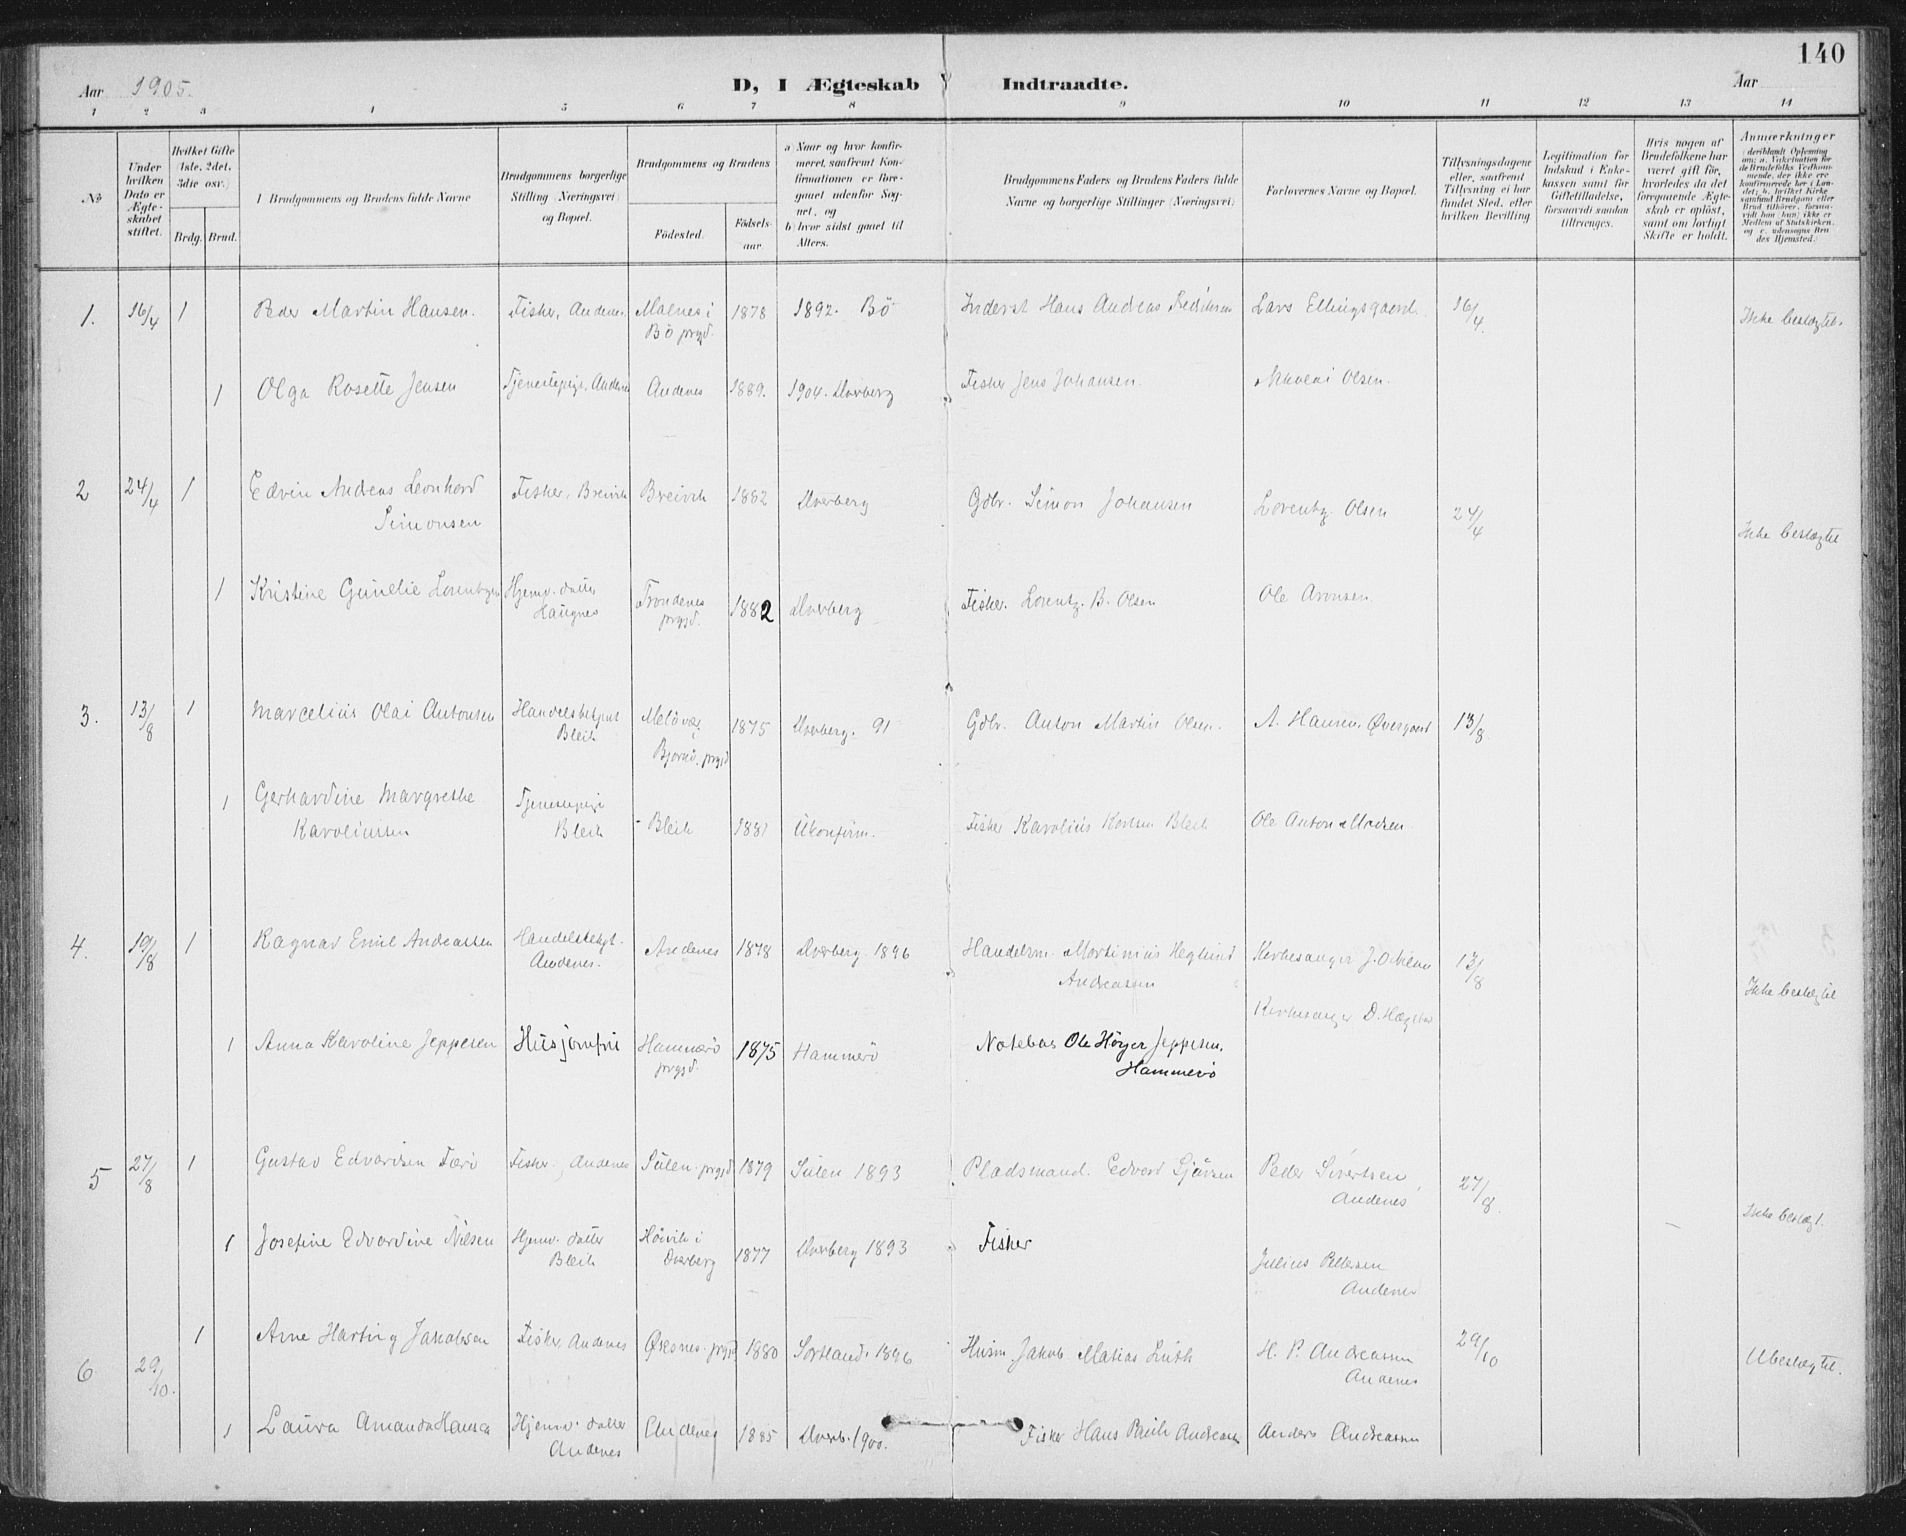 140
Aar 1905.
D, I Ægteskab Indtraadte.
Aar
1 2 3 4 5 6 7 8 9 10 11 12 13 14
No
Under hvilken Dato er Ægteskabet stiftet.
Hvilket Gifte (1ste, 2det, 3die osv.)
Brdg. Brud.
Brudgommens og Brudens fulde Navne
Brudgommens borgerlige Stilling (Næringsvei) og Bopæl.
Brudgommens og Brudens
Födested. Födselsaar.
a) Naar og hvor konfirmeret, saafremt Konfirmationen er foregaaet udenfor Sognet, og
b) hvor sidst gaaet til Alters.
Brudgommens Faders og Brudens Faders fulde Navne og borgerlige Stillinger (Næringsvei)
Forlovernes Navne og Bopæl.
Tillysningsdagene eller, saafremt Tillysning ei har fundet Sted, efter hvilken Bevilling
Legitimation for Indskud i Enkekassen samt for Giftetilladelse, forsaavidt saadan tiltrænges.
Hvis nogen af Brudefolkene har været gift før, hvorledes da det foregaaende Ægteskab er opløst, samt om lovligt Skifte er holdt.
Anmærkninger
(deriblandt Oplysning om: a. Vakcination for de Brudefolks Vedkommende, der ikke ere konfirmerede her i Landet; b. hvilket Kirkesamfund Brudgom eller Brud tilhører, forsaavidt han (hun) ikke er Medlem af Statskirken, og c. udensogns Brudes Hjemsted.)
1. 16/4 1 Peder Martin Hansen. Fisker, Andenes. Malnes i Bö prgjd. 1878 1892. Bö Inderst Hans Andreas Lars Ellingsgaard. 16/4. Ikke beslægtet.
1 Olga Rosette Jensen Tjenestepige, Andenes Andenes 1889. 1904. Dverberg Fisker Jens Johansen. Nikolai Olsen.
2 24/4 1 Edvin Andreas Leonhard Simonsen Fisker, Breivik Breivik 1882 Dverberg Gdbr. Simon Johansen Lorentz Olsen 24/4 Ikke beslægtet
1 Kristine Gunelie Lorentzen Hjemv. datter Haugnes Trondenes prgjd. 1882 Dverberg Fisker. Lorentz. B. Olsen Ole Aronsen.
3. 13/8 1 Marcelius Olai Antonsen Handelsbetjent Bleik Melövær i prgjd 1875 Dverberg. 91 Gdbr. Anton Martin Olsen. A. Hansen, Øvergaard 13/8.
1 Gerhardine Margrethe Karoliussen Tjenestepige Bleik Bleik 1881 Ukonfirm. Fisker Karolius Karlsen Bleik Ole Anton Madsen.
4. 19/8 1 Ragnar Emil Andreassen Handelsbetjt. Andenes. Andenes 1878 Dverberg. 1896 Handelsm. Martinius Heglund Andreassen Kirkesanger 13/8 Ikke beslægtet
Kirkesanger D.
1 Anna Karoline Jeppesen Husjomfru Hammerö prgjd. 1875 Hammerö Notebas Ole Höyer Jeppesen, Hammerö
5 27/8 1 Gustav Edvardsen Færö Fisker, Andenes Sulen prgjd 1879 Sulen 1893 Pladsmand. Edvard Peder Sivertsen, Andenes 27/8. Ikke beslægt.
1 Josefine Edvardine Nilsen Hjemv. datter Bleik Höivik i Dverberg 1877 Dverberg 1893 Fisker Julius Pettersen Andenes
6 29/10. 1 Arne Hartvig Jakobsen Fisker, Andenes Øksnes prgjd 1880 Sortland. 1896 Husm. Jakob Matias Luth H. P. Andreassen Andenes 29/10 Ubeslægtet.
1 Laura Amanda Hansen Hjemv. datter Andenes Andenes 1885 Dverb. 1900. Fisker Hans Paulk Andreassen Anders Andreassen